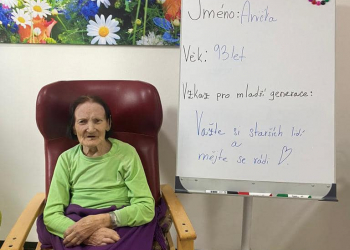 Jméno: Anička
Věk: 93 let
Vzkaz pro mladší generace:
Važte si starších lidí
a
mějte se rádi